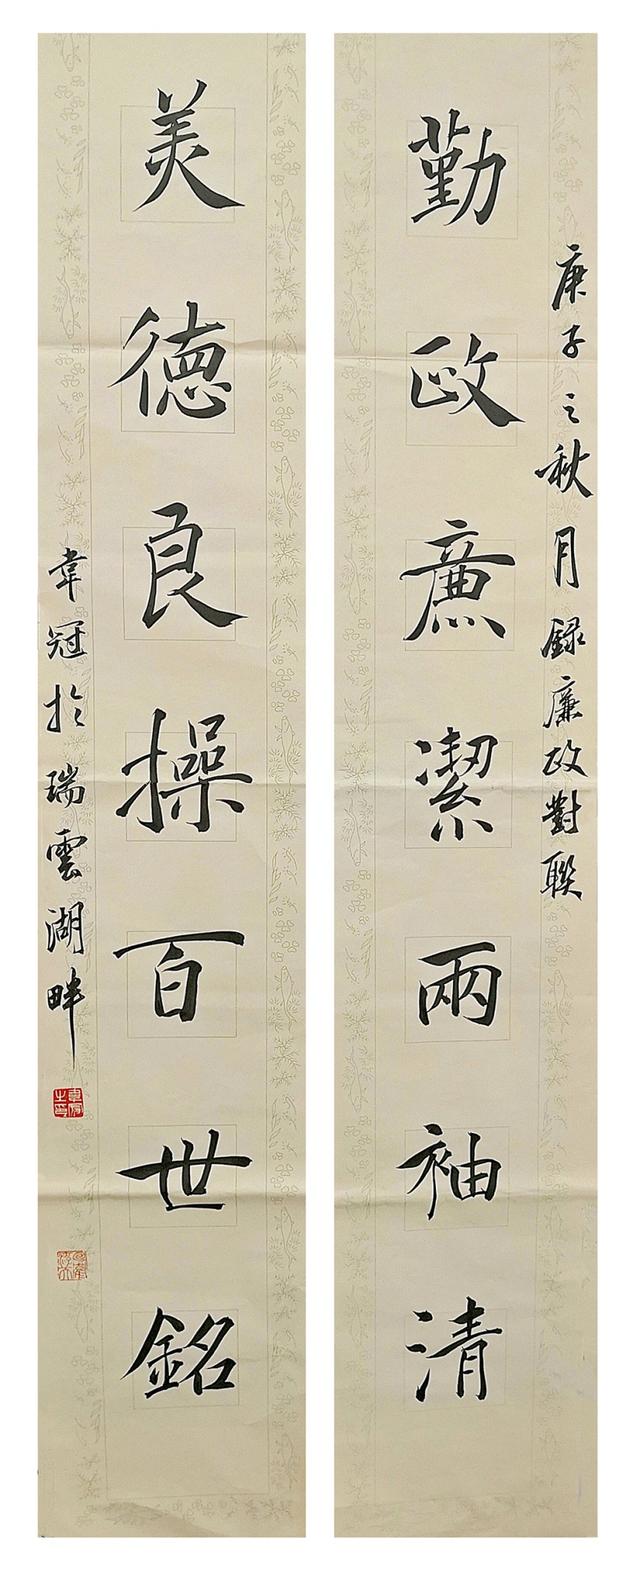 庚子之秋月録廉政對聯
勤政廉潔兩袖清
美德良操百世銘
韋冠於瑞雲湖畔